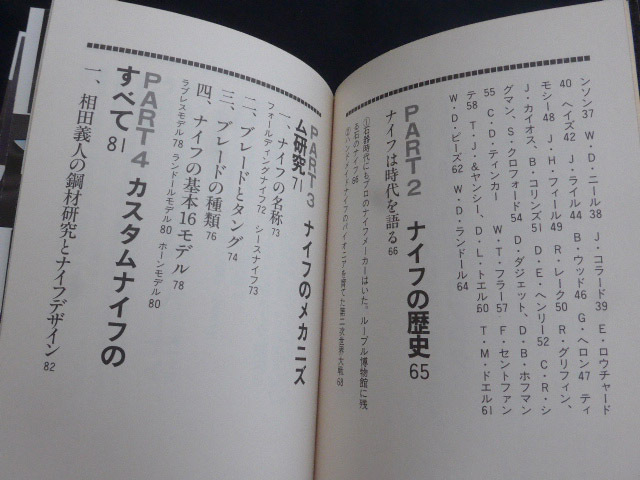 ンソン37　W・D・ニール38　J・コラード39　E・ロウチャード
40　ヘイズ42　J・ライル44　B・ウッド46　G・ヘロン47　ティ
モシー48　J・H・フィール49　R・レーク50　R・グリフィン、
J・カイオス、B・コリンズ51　D・E・ヘンリー52　C・R・シ
グマン、S・クロフォード54　D・ダジェット、D・B・ホフマン
55　C・D・ティンカー　W・T・フラー57　F・セントファン
テ58　T・J・&ヤンシー、D・L・トエル60　T・M・ドエル61
W・D・ピーズ62　W・D・ランドール64
PART2　ナイフの歴史65
ナイフは時代を語る66
①石器時代にもプロのナイフメーカーはいた。ルーブル博物館に残
る石のナイフ66
②ハンドメイドナイフのパイオニアを育てた第二次世界大戦68
PART3　ナイフのメカニズ
ム研究71
一、ナイフの名称73
フォールディングナイフ72　シースナイフ73
二、ブレードとタング74
三、ブレードの種類76
四、ナイフの基本16モデル78
ラブレスモデル78　ランドールモデル80　ホーンモデル80
PART4　カスタムナイフの
すべて81
一、相田義人の鋼材研究とナイフデザイン82